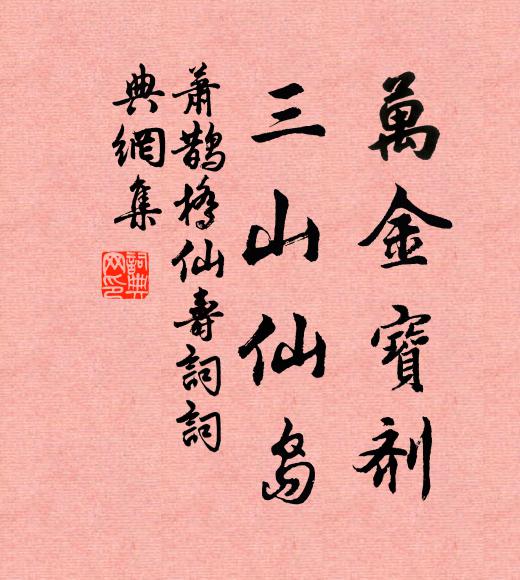 萬金寶劑
三山仙島
蕭鵲橋仙壽詞詞
典網集
詞典网印